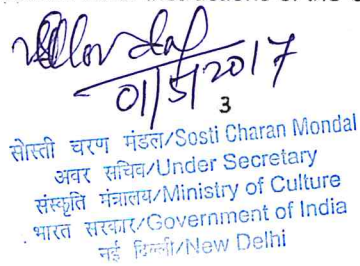 01/5/2017
3
सोस्ती चरण मंडल/Sosti Charan Mondal
अवर सचिव/Under Secretary
संस्कृति मंत्रालय/Ministry of Culture
भारत सरकार/Government of India
नई दिल्ली/New Delhi